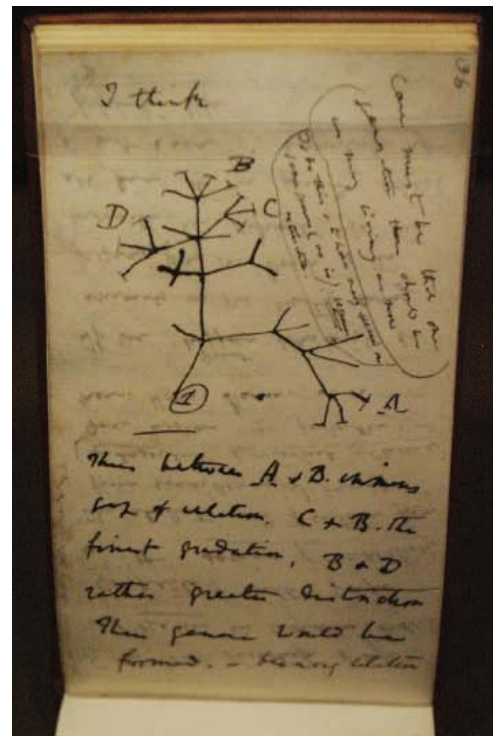 36
I think
Case must be that one
generation then should be
as many living as now
To do this & to have many species in
same genus (as is). requires
extinction
B
C
D
1
A
Thus between A & B. immense
gap of relation. C & B. the
finest gradation, B & D
rather greater distinction
Thus genera would be
formed. — bearing relation